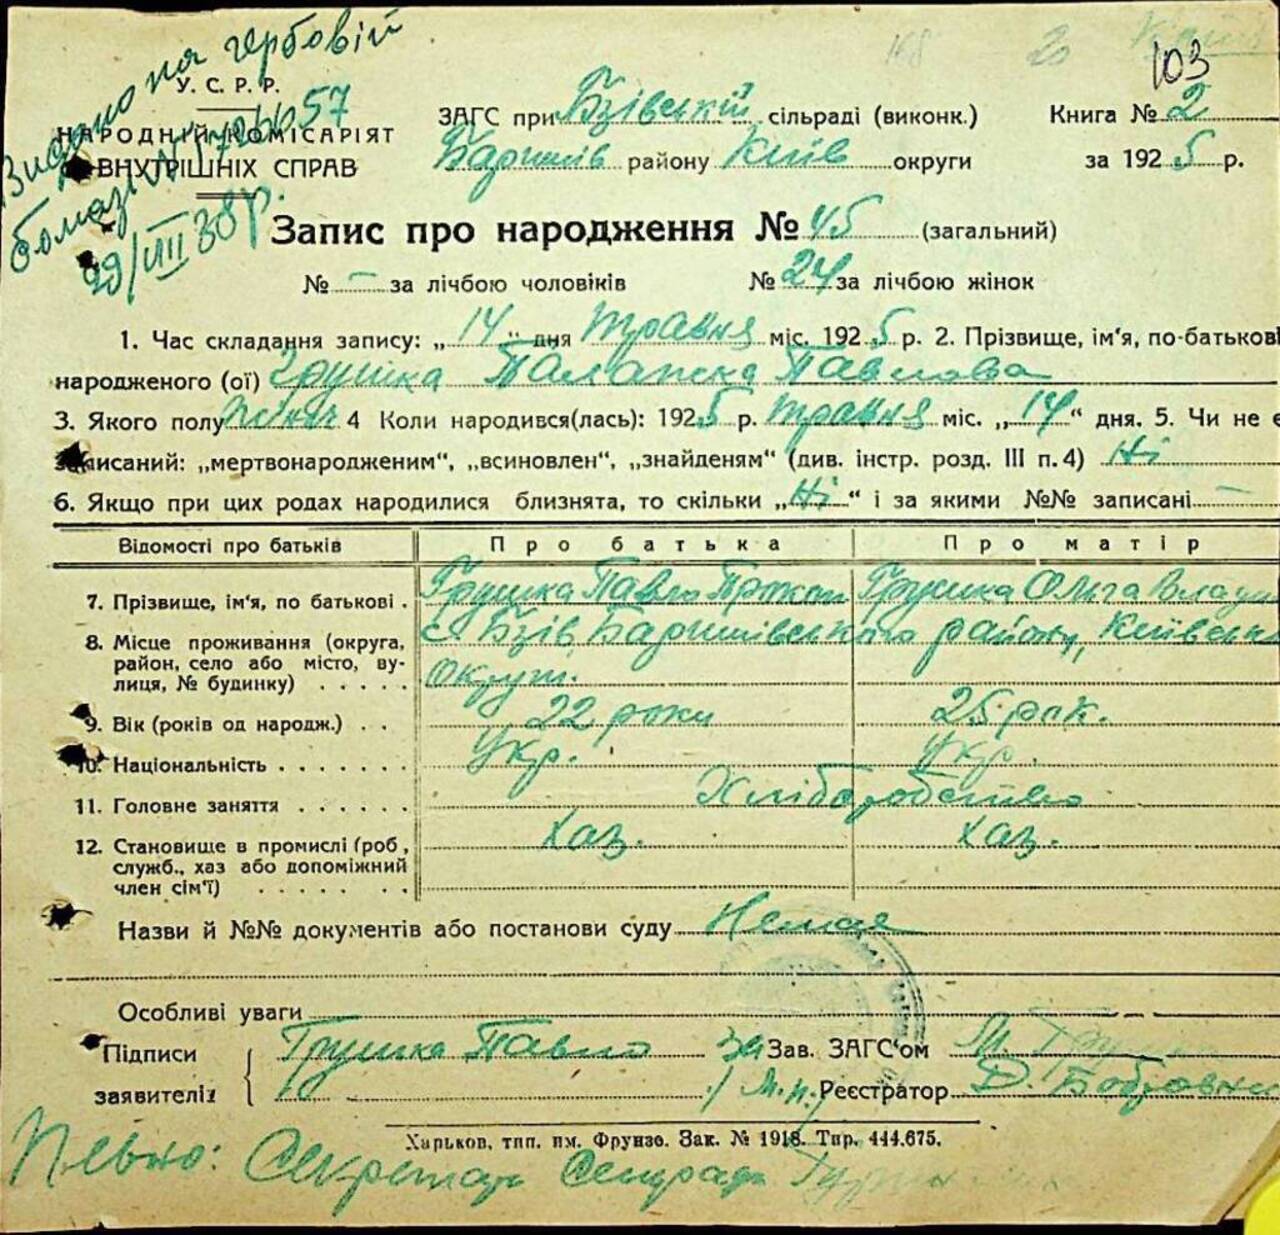 Видано на гербовій
бомазі № 572667
29/VIII 38р.
103
У. С. Р. Р.
НАРОДНИЙ КОМІСАРІЯТ
ВНУТРІШНІХ СПРАВ
ЗАГС при Бзівській сільраді (виконк.) Книга № 2
Баришів району Київ округи за 1925 р.
Запис про народження № 45 (загальний)
№ – за лічбою чоловіків № 24 за лічбою жінок
1. Час складання запису: „14“ дня травня міс. 1925 р. 2. Прізвище, ім'я, по-батькові
народженого (ої) Грушка Палажка Павлова
3. Якого полу жіноч 4 Коли народився(лась): 1925 р. травня міс. „14“ дня. 5. Чи не є
записаний: „мертвонародженим“, „всиновлен“, „знайденям“ (див. інстр. розд. III п. 4) Ні
6. Якщо при цих родах народилися близнята, то скільки „Ні“ і за якими №№ записані –
Відомості про батьків Про батька Про матір
7. Прізвище, ім'я, по батькові . Грушка Павло Прокоп Грушка Ольга
8. Місце проживання (округа, с. Бзів Баришівського району, Київської
район, село або місто, ву-
лиця, № будинку) . . . . . Округи.
9. Вік (років од народж.) . . 22 роки 25 рок.
10. Національність . . . . . . . Укр. Укр.
11. Головне заняття . . . . . . Хліборобство
12. Становище в промислі (роб., хаз. хаз.
служб., хаз або допоміжний
член сім'ї) . . . . . . .
Назви й №№ документів або постанови суду Немає
Особливі уваги
Підписи Грушка Павло За Зав. ЗАГС'ом М.
заявителів / М.п./ Реєстратор Д. Бобровни
Харьков, тип. им. Фрунзе. Зак. № 1918. Тир. 444.675.
Певно: Секретар Сельради